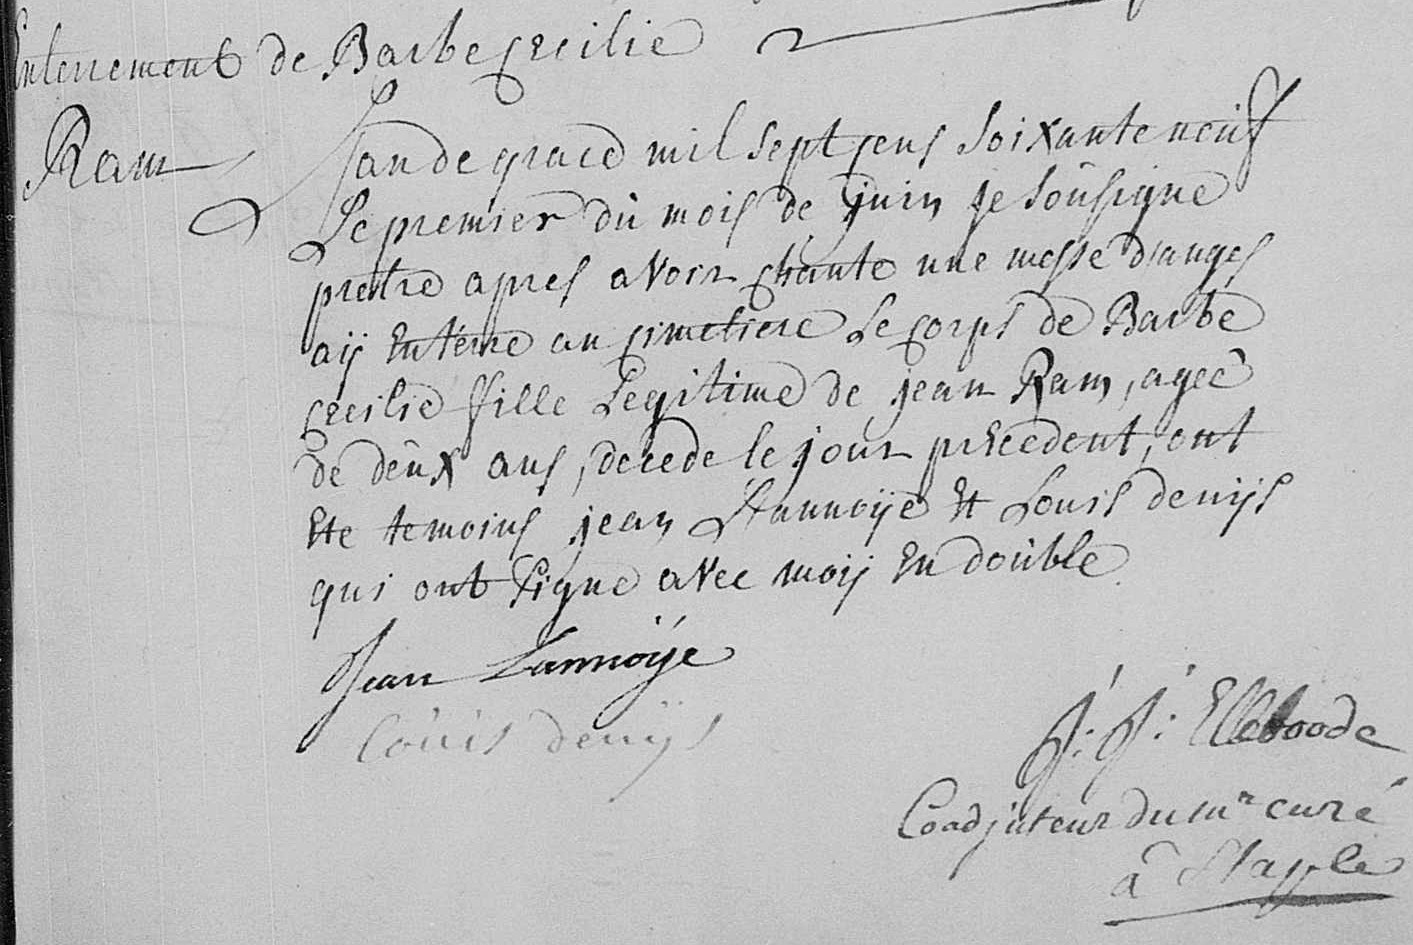 Enterrement de Barbe Cecilie
Ram
Lan de grace mil sept cens soixante neuf
Le premier dû mois de juin je soûsigne
pretre apres avoir chante une messe d'anges
aÿ enterre au cimetiere Le corps de Barbe
Cecilie fille Legitime de jean Ram, ageé
de deûx ans, decede le jour precedent, ont
ete temoins jean Lannoÿe et Louis denÿs
qui ont signe avec moÿ en doûble
Jean Lannoÿe
Loûis denÿs
J: J: Elleboode
Coadjuteur du mr curé
à Staple